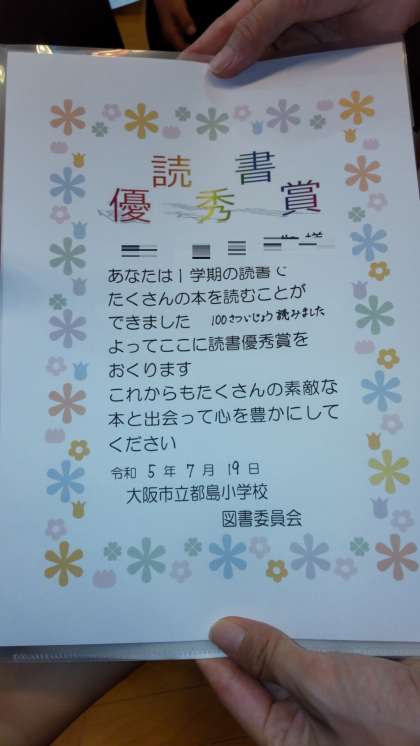 読書
優秀賞
様
あなたは1学期の読書で
たくさんの本を読むことが
できました 100さついじょう読みました
よってここに読書優秀賞を
おくります
これからもたくさんの素敵な
本と出会って心を豊かにして
ください
令和 5 年 7 月 19 日
大阪市立都島小学校
図書委員会